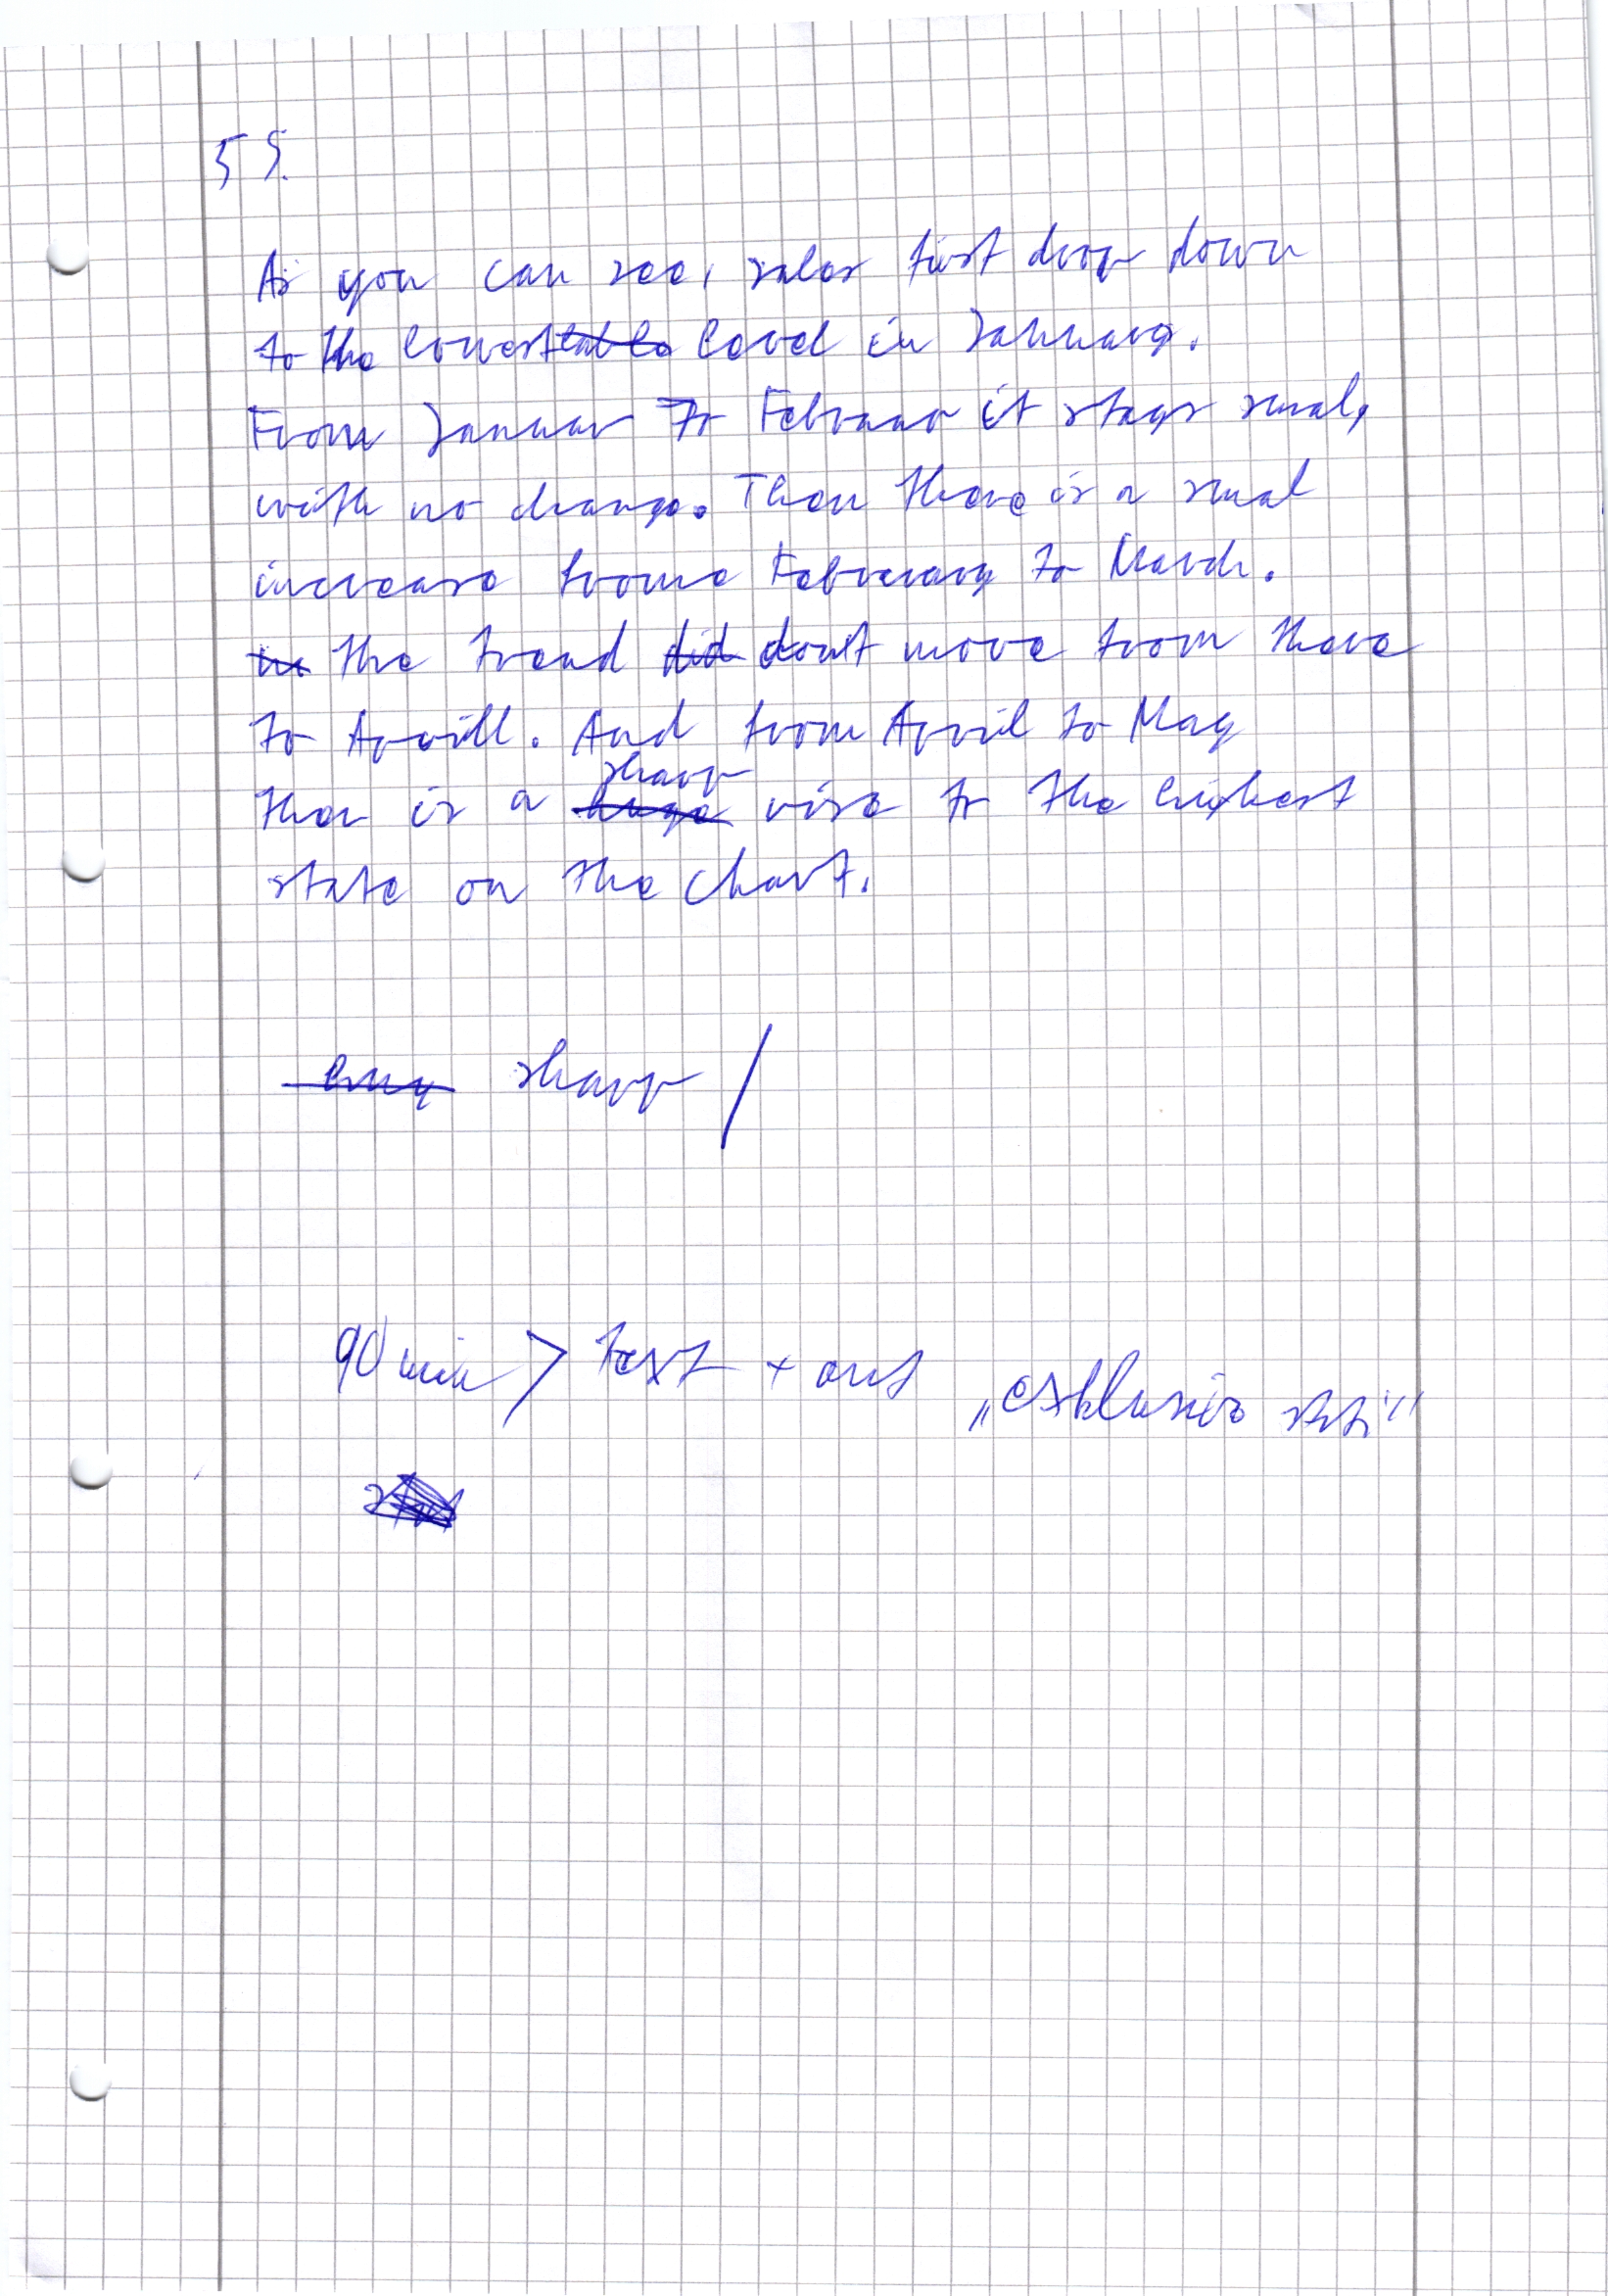 55.
As you can see, sales first drop down
to the lowest level in January.
From Januar to Februar it stays
with no change. Then there is a smal
increase frome February to March.
the trend don't move from there
to Aprill. And from April to May
ther is a sharp rise to the highest
state on the chart.
sharp /
90 min > text +